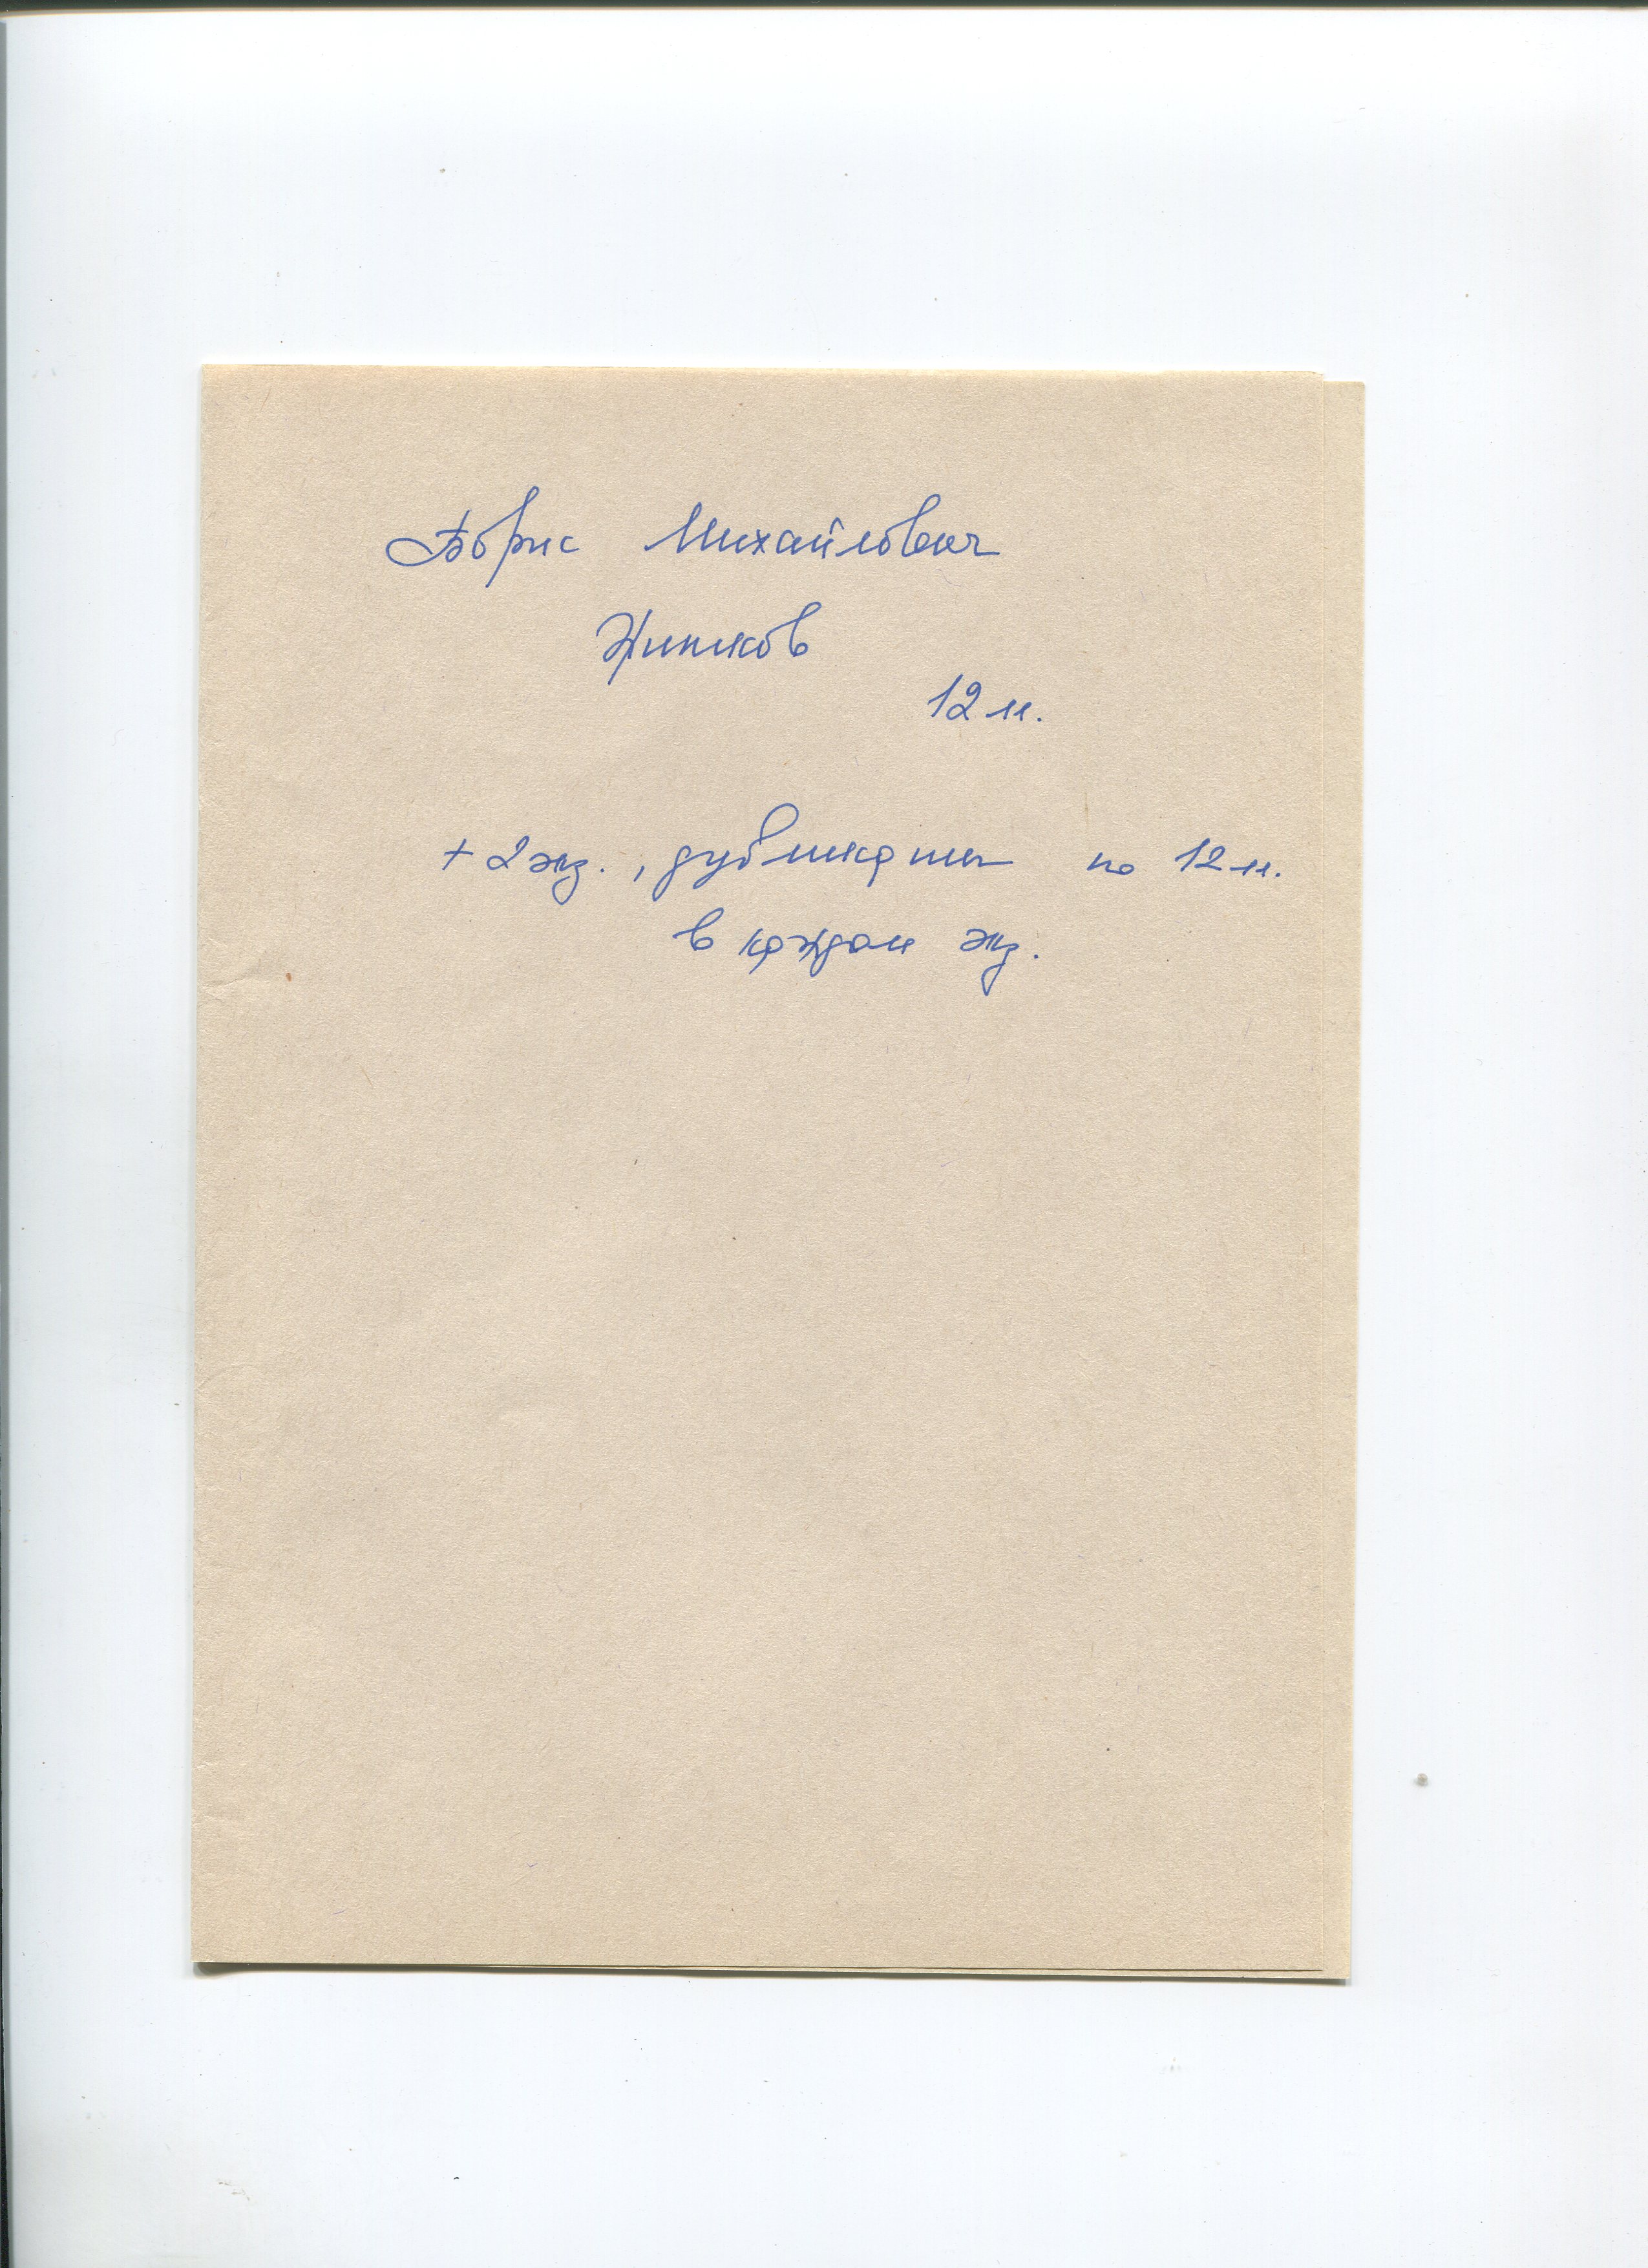 Борис Михайлович
Житков
12 л.
+ 2 экз., дубликаты по 12 л.
в каждом экз.